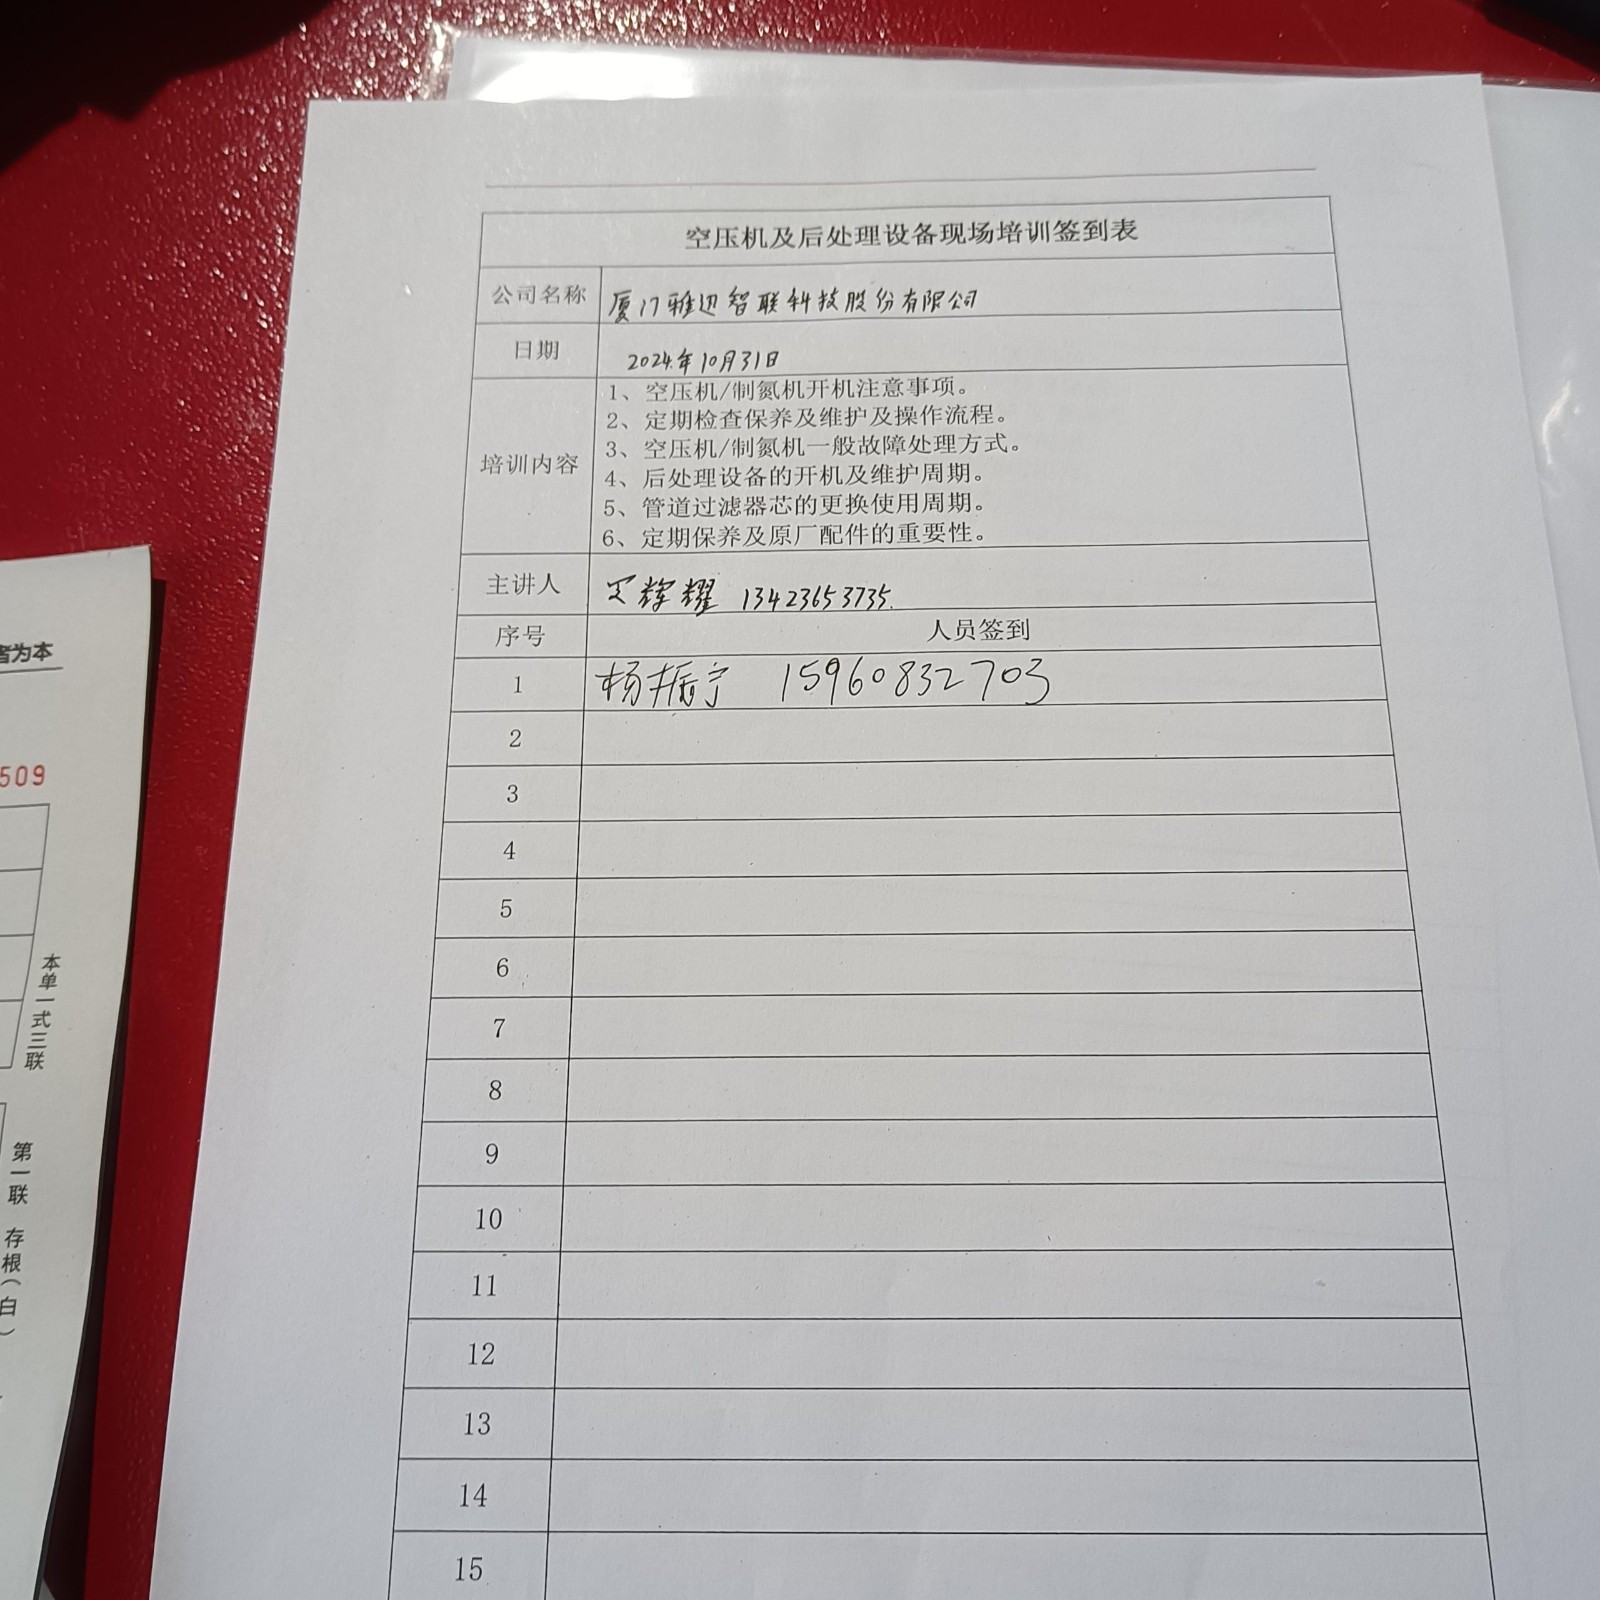 空压机及后处理设备现场培训签到表
公司名称 厦门雅迅智联科技股份有限公司
日期 2024年10月31日
培训内容
1、空压机/制氮机开机注意事项。
2、定期检查保养及维护及操作流程。
3、空压机/制氮机一般故障处理方式。
4、后处理设备的开机及维护周期。
5、管道过滤器芯的更换使用周期。
6、定期保养及原厂配件的重要性。
主讲人 辉耀 13423653735.
序号 人员签到
1 杨振宁 15960832703
2
3
4
5
6
7
8
9
10
11
12
13
14
15
者为本
509
本单一式三联
第一联 存根(白)